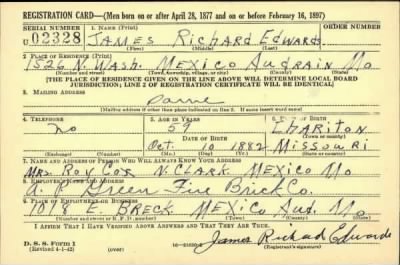 REGISTRATION CARD—(Men born on or after April 28, 1877 and on or before February 16, 1897)
SERIAL NUMBER 1. NAME (Print) ORDER NUMBER
U 02328 JAMES Richard Edwards
(First) (Middle) (Last)
2. PLACE OF RESIDENCE (Print)
1526 N. Wash. MEXICO Audrain Mo
(Number and street) (Town, township, village, or city) (County) (State)
[THE PLACE OF RESIDENCE GIVEN ON THE LINE ABOVE WILL DETERMINE LOCAL BOARD
JURISDICTION; LINE 2 OF REGISTRATION CERTIFICATE WILL BE IDENTICAL]
3. MAILING ADDRESS
Same
[Mailing address if other than place indicated on line 2. If same insert word same]
4. TELEPHONE 5. AGE IN YEARS 6. PLACE OF BIRTH
no 59 Chariton
DATE OF BIRTH
Oct. 10 1882 Missouri
7. NAME AND ADDRESS OF PERSON WHO WILL ALWAYS KNOW YOUR ADDRESS
Mrs. Roy Cox N. Clark Mexico Mo
8. EMPLOYER'S NAME AND ADDRESS
A. P. Green Fire Brick Co.
9. PLACE OF EMPLOYMENT OR BUSINESS
1018 E. Breck Mexico Aud. Mo
(Number and street or R. F. D. number) (Town) (County) (State)
I AFFIRM THAT I HAVE VERIFIED ABOVE ANSWERS AND THAT THEY ARE TRUE.
D. S. S. Form 1
(Revised 4-1-42) (over) James Richard Edwards
(Registrant's signature)